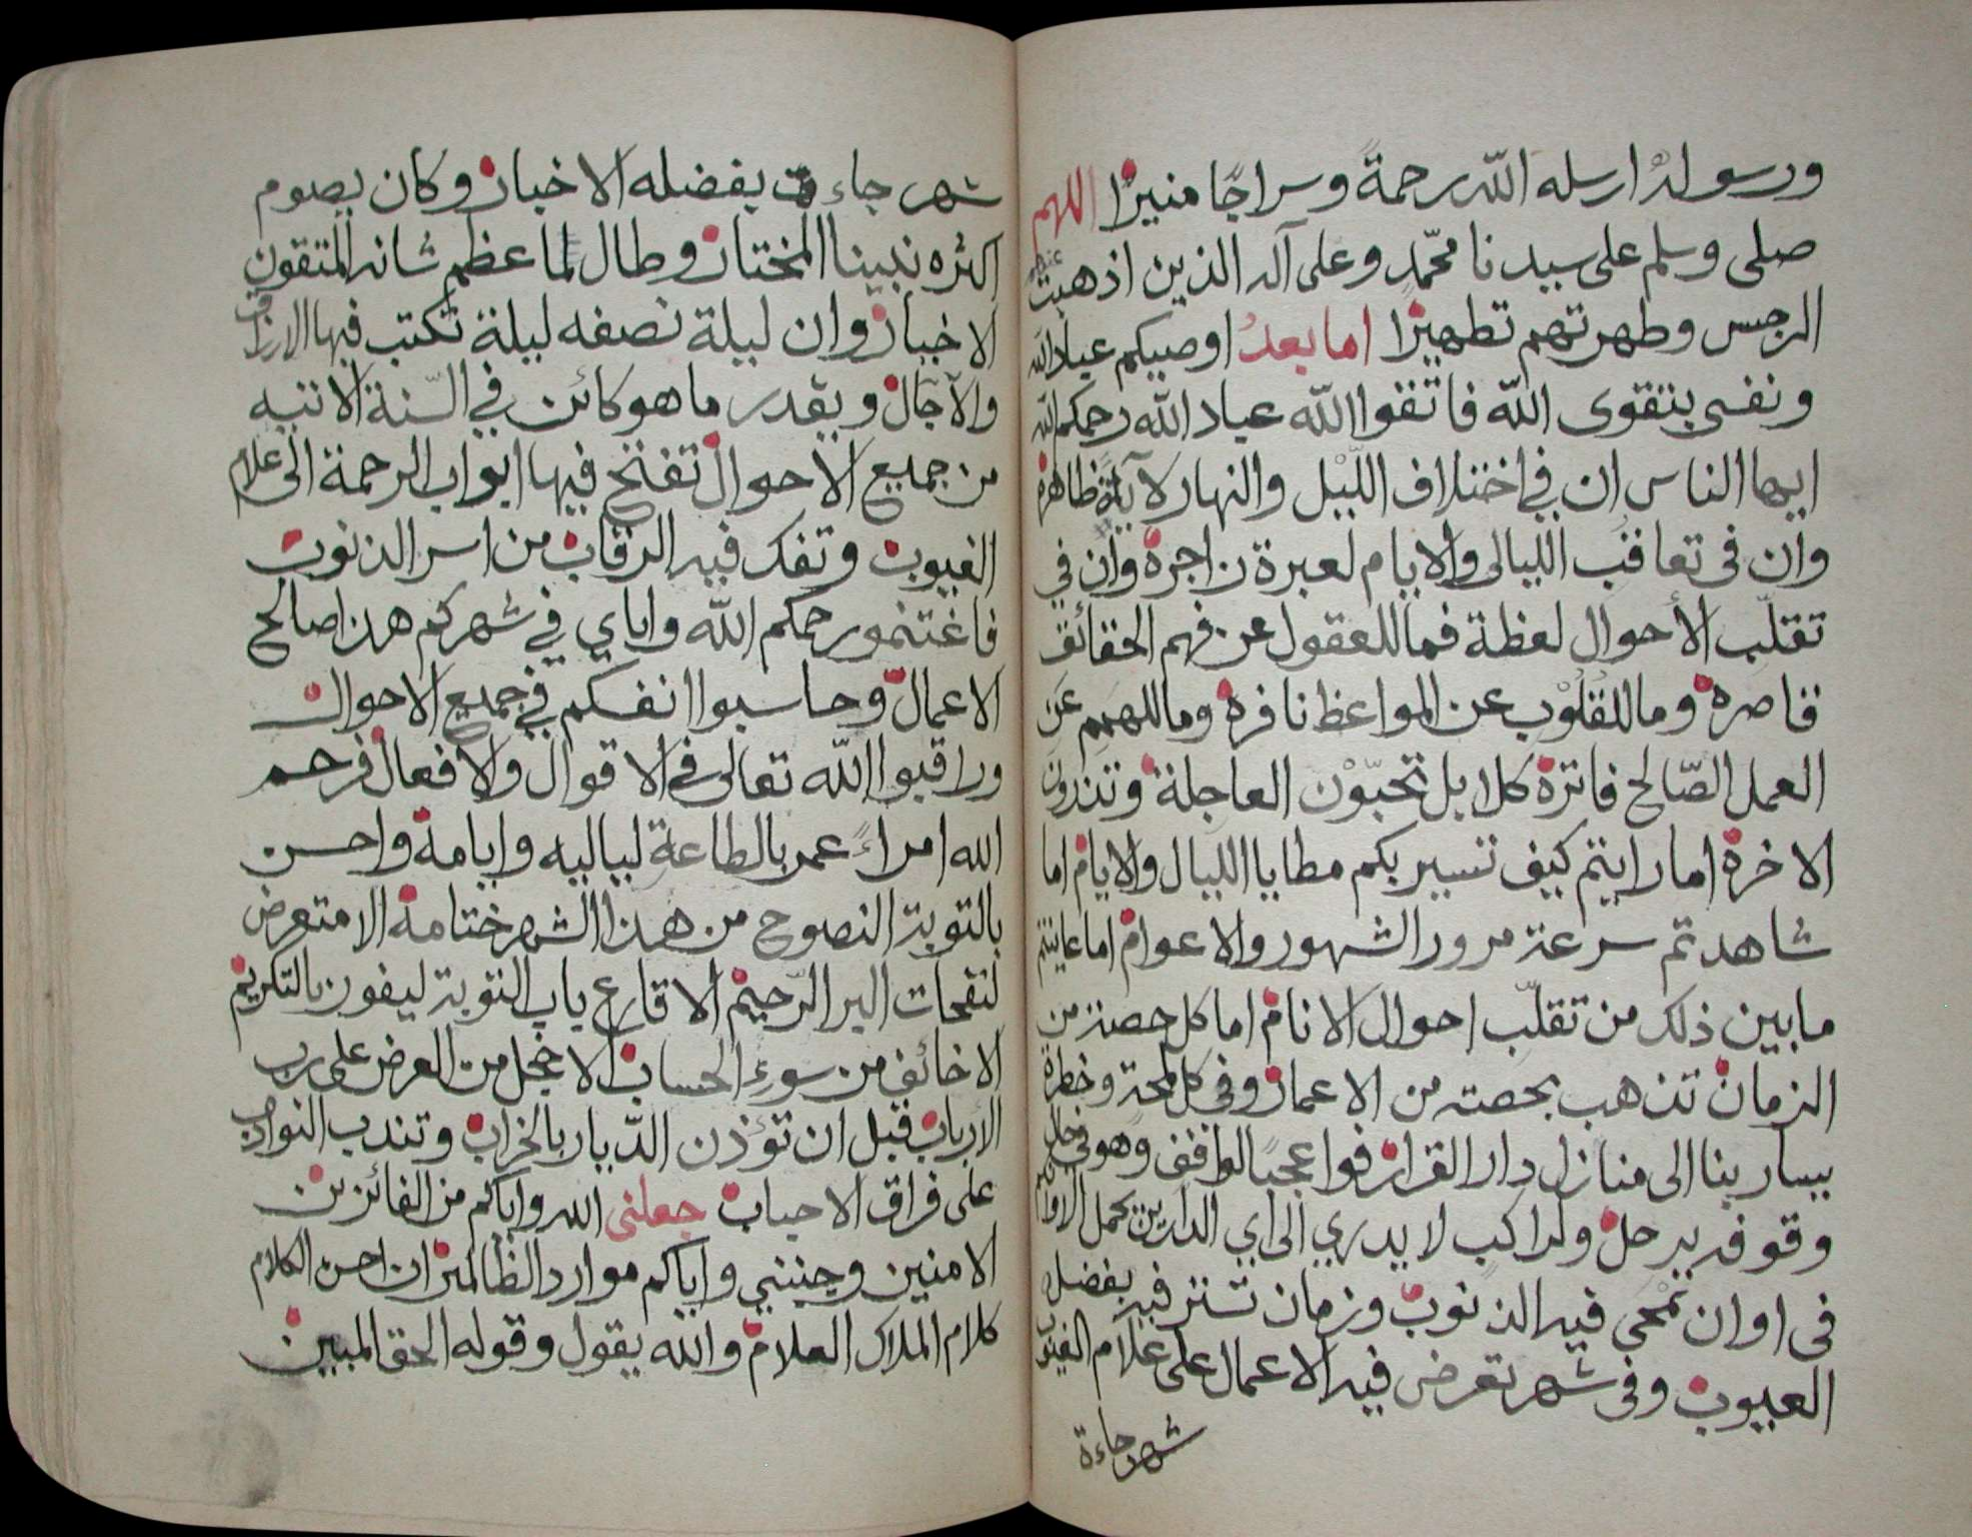 ورسوله ارسله الله رحمة وسراجا منيرا اللهم
صلى وسلم على سيدنا محمد وعلى آله الذين اذهبت عنهم
الرجس وطهرتهم تطهيرا اما بعد اوصيكم عباد الله
ونفسى بتقوى الله فاتقوا الله عباد الله رحمكم الله
ايها الناس ان في اختلاف الليل والنهار لآية ظاهرة
وان فى تعاقب الليالى والايام لعبرة زاجرة وان في
تقلب الأحوال لعظة فما للعقول عن فهم الحقائق
قاصرة وما للقلوب عن المواعظ نافرة وما للهمم عن
العمل الصالح فاترة كلا بل تحبون العاجلة وتذرون
الاخرة اما رايتم كيف تسير بكم مطايا الليال والايام اما
شاهدتم سرعة مرور الشهور والاعوام اما عاينتم
ما بين ذلك من تقلب احوال الانام اما كل حصة من
الزمان تذهب بحصته من الاعمار وفى كل لمحة وخطرة
يسار بنا الى منازل دار القرار فوا عجبا لواقف وهو فى حال
وقوفه يرحل ولراكب لا يدري الى اي الدارين يحمل الا وانكم
فى اوان تمحى فيه الذنوب وزمان تستر فيه بفضله
العيوب وفى شهر تعرض فيه الاعمال على علام الغيوب
شهر جاءة
شهر جاءت بفضله الاخبار وكان يصوم
اكثره نبينا المختار وطال لما عظم شانه المتقون
الاخيار وان ليلة نصفه ليلة تكتب فيها الارزاق
والآجال ويقدر ما هو كائن في السنة الاتيه
من جميع الأحوال تفتح فيها ابواب الرحمة الى علام
الغيوب وتفك فيه الرقاب من اسر الذنوب
فاغتنمو رحمكم الله واياي في شهركم هذا صالح
الاعمال وحاسبوا انفسكم في جميع الاحوال
وراقبوا الله تعالى فى الاقوال والافعال فرحم
الله امراء عمر بالطاعة لياليه وايامه واحسن
بالتوبة النصوح من هذا الشهر ختامه الا متعرض
لنفحات البر الرحيم الا قارع باب التوبة ليفوز بالتكريم
الا خائف من سوء الحساب الا خجل من العرض على رب
الارباب قبل ان تؤذن الديار بالخراب وتندب النوادب
على فراق الاحباب جعلنى الله واياكم من الفائزين
الامنين وجنبني واياكم موارد الظالمين ان احسن الكلام
كلام الملاك العلام والله يقول وقوله الحق المبين